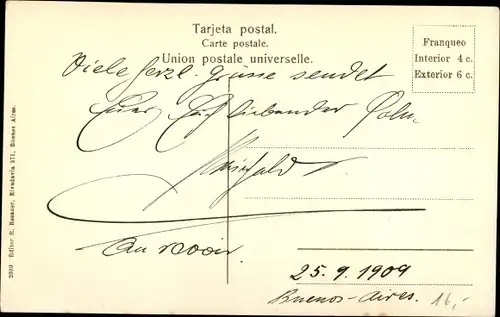 Tarjeta postal.
Carte postale.
Union postale universelle.
Franqueo
Interior 4 c.
Exterior 6 c.
Viele herzl. Grüsse sendet
Euer Euch liebender Sohn
Au revoir.
25. 9. 1909
Buenos-Aires.
16,-
2089 Editor R. Rosauer, Rivadavia 571, Buenos Aires.